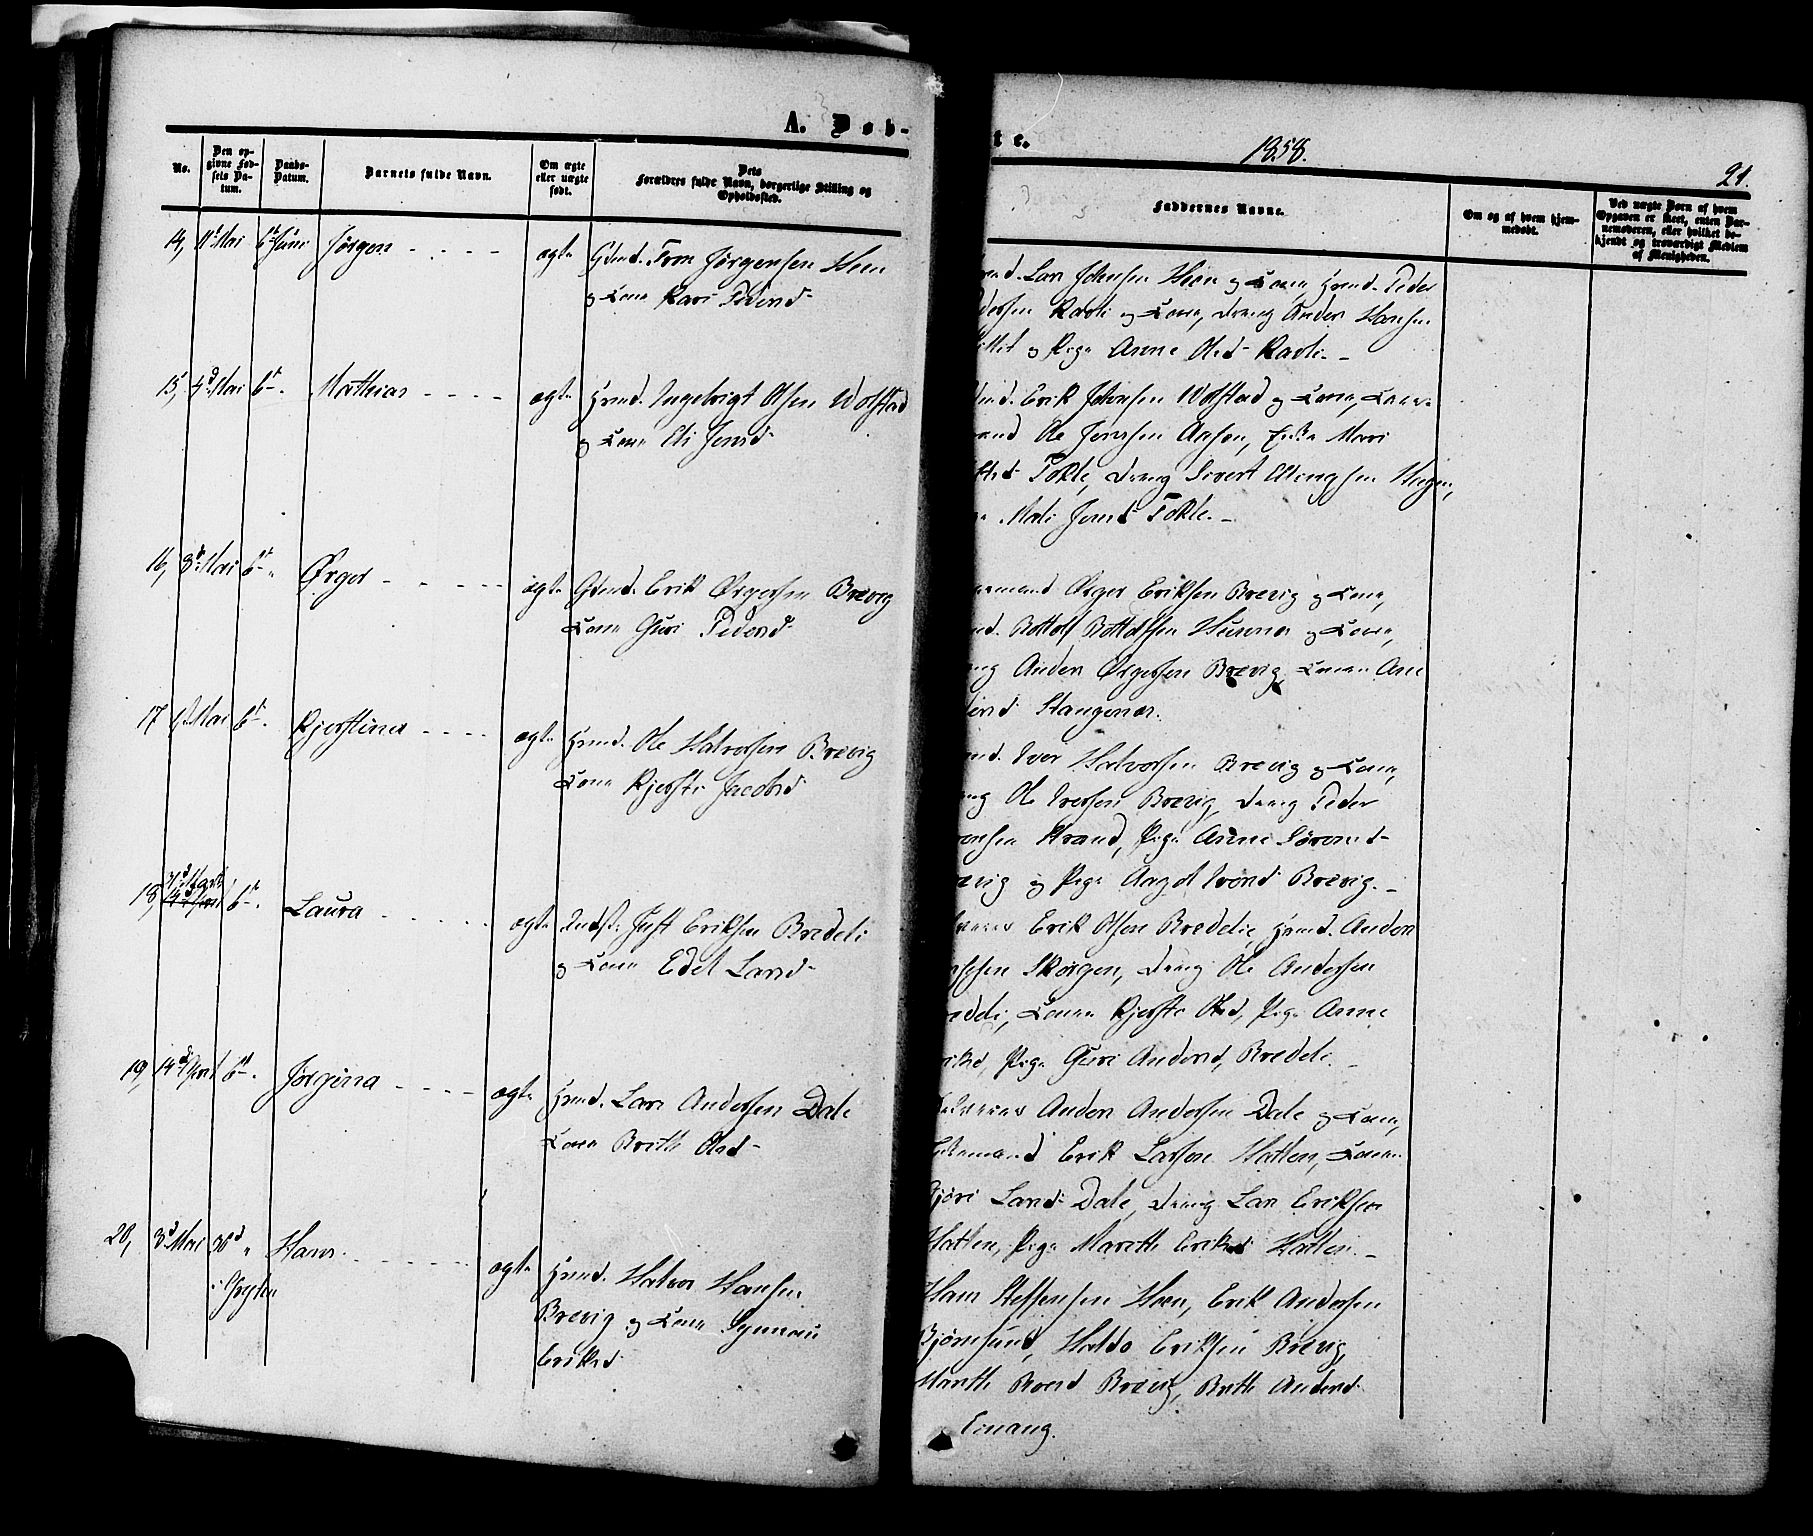 A. Døb-
te.
1858.
21.
No.
Den op-
givne Fød-
sels Da-
tum.
Daabs-
Datum.
Barnets fulde Navn.
Om ægte
eller uægte
født.
Dets
Forældres fulde Navn, borgerlige Stilling og
Opholdssted.
Faddernes Navne.
Om og af hvem hjem-
medøbt.
Ved uægte Børn af hvem
Opgaven er skeet, enten Bar-
nemoderen, eller hvilket be-
kjendt og troværdigt Medlem
af Menigheden.
14, 11te Mai 6te Juni Jørgen - - - - ægte Gdmd. Jørgensen Hoen
og Kone Kari Pedersd-
Lars Johnsen Hoen og Kone, Hmd. Peder
Kavli og Kone, Dreng Anders Hansen
og Pige Anne Olsd- Kavli. -
15, 4d Mai 6te. Mathias - - - - ægte Hmd. Ingebrigt Olsen Wolstad
og Kone Eli Jensd-
Erik Johnsen Wolstad og Kone,
Ole Jensen Aasen, Enke Mari
Tokle, Dreng Sivert Ellingsen Hagen,
Mali Jensd Tokle. -
16, 8de Mai 6te " Ørger - - - - ægte Gdmd. Erik Ørgersen Brevig
Kone Guri Pedersd-
Ørger Eriksen Brevig og Kone,
Bottolf Bottolfsen Husenes og Kone,
Anders Ørgersen Brevig, Konen Ane
Stangenes.
17 Mai 6te. Kjerstina - - - - ægte Hmd. Ole Halvorsen Brevig
Kone Kjersti Jacobsd
Iver Halvorsen Brevig og Kone,
Ole Iversen Brevig, Dreng Peder
Strand, Pige Anne Sørensd-
og Pige Iversd Brevig. -
18, 6te. Laura - - - - ægte Indst. Just Eriksen Bredeli
og Kone Edel Larsd-
Erik Olsen Bredelie, Hmd. Anders
Skorgen, Dreng Ole Andersen
Konen Kjersti Olsd, Pige Anne
Pige Guri Andersd, Bredeli. -
19, 14de April 6te. Jørgina - - - - ægte Hmd. Lars Andersen Dale
Kone Brithe Olsd-
Anders Andersen Dale og Kone,
Erik Larsen Hatlen, Konen
Larsd- Dale, Dreng Lars Eriksen
Hatlen, Pige Marethe Eriksd Hatlen. -
20, 3d Mai 30d " Hans - - - - ægte Hmd. Halvor Hansen
i Grytten
Brevig og Kone Synnøu
Eriksd-
Hans Steffensen Hoen, Erik Andersen
Bjørnsund, Haldo Eriksen Brevig,
Marith Brevig, Brithe Andersd-
Einang.